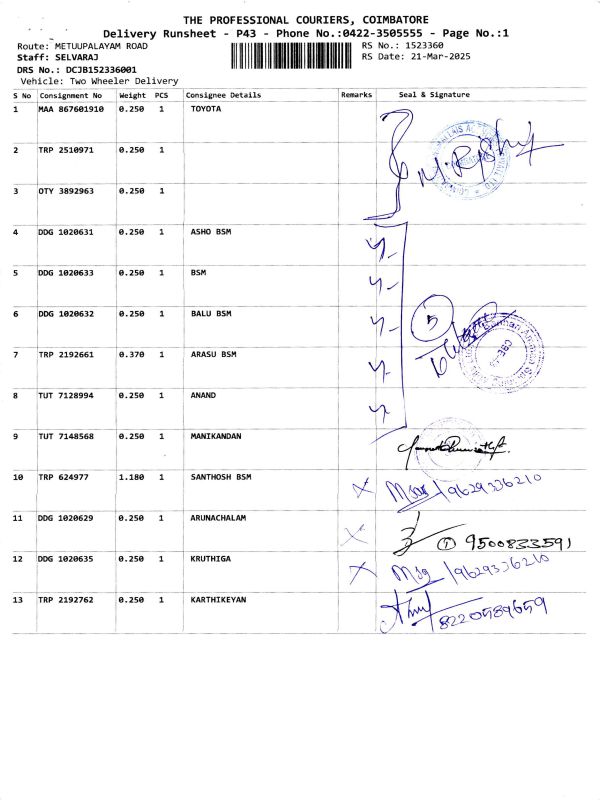 THE PROFESSIONAL COURIERS, COIMBATORE
Delivery Runsheet - P43 - Phone No.:0422-3505555 - Page No.:1
Route: METUUPALAYAM ROAD
RS No.: 1523360
Staff: SELVARAJ
RS Date: 21-Mar-2025
DRS No.: DCJB152336001
Vehicle: Two Wheeler Delivery
S No Consignment No Weight PCS Consignee Details Remarks Seal & Signature
1 MAA 867601910 0.250 1 TOYOTA
2 TRP 2510971 0.250 1
3 OTY 3892963 0.250 1
4 DDG 1020631 0.250 1 ASHO BSM
5 DDG 1020633 0.250 1 BSM
6 DDG 1020632 0.250 1 BALU BSM 5
7 TRP 2192661 0.370 1 ARASU BSM
8 TUT 7128994 0.250 1 ANAND
9 TUT 7148568 0.250 1 MANIKANDAN
10 TRP 624977 1.180 1 SANTHOSH BSM 9629336210
11 DDG 1020629 0.250 1 ARUNACHALAM 1 9500833591
12 DDG 1020635 0.250 1 KRUTHIGA 9629336210
13 TRP 2192762 0.250 1 KARTHIKEYAN 8220589659